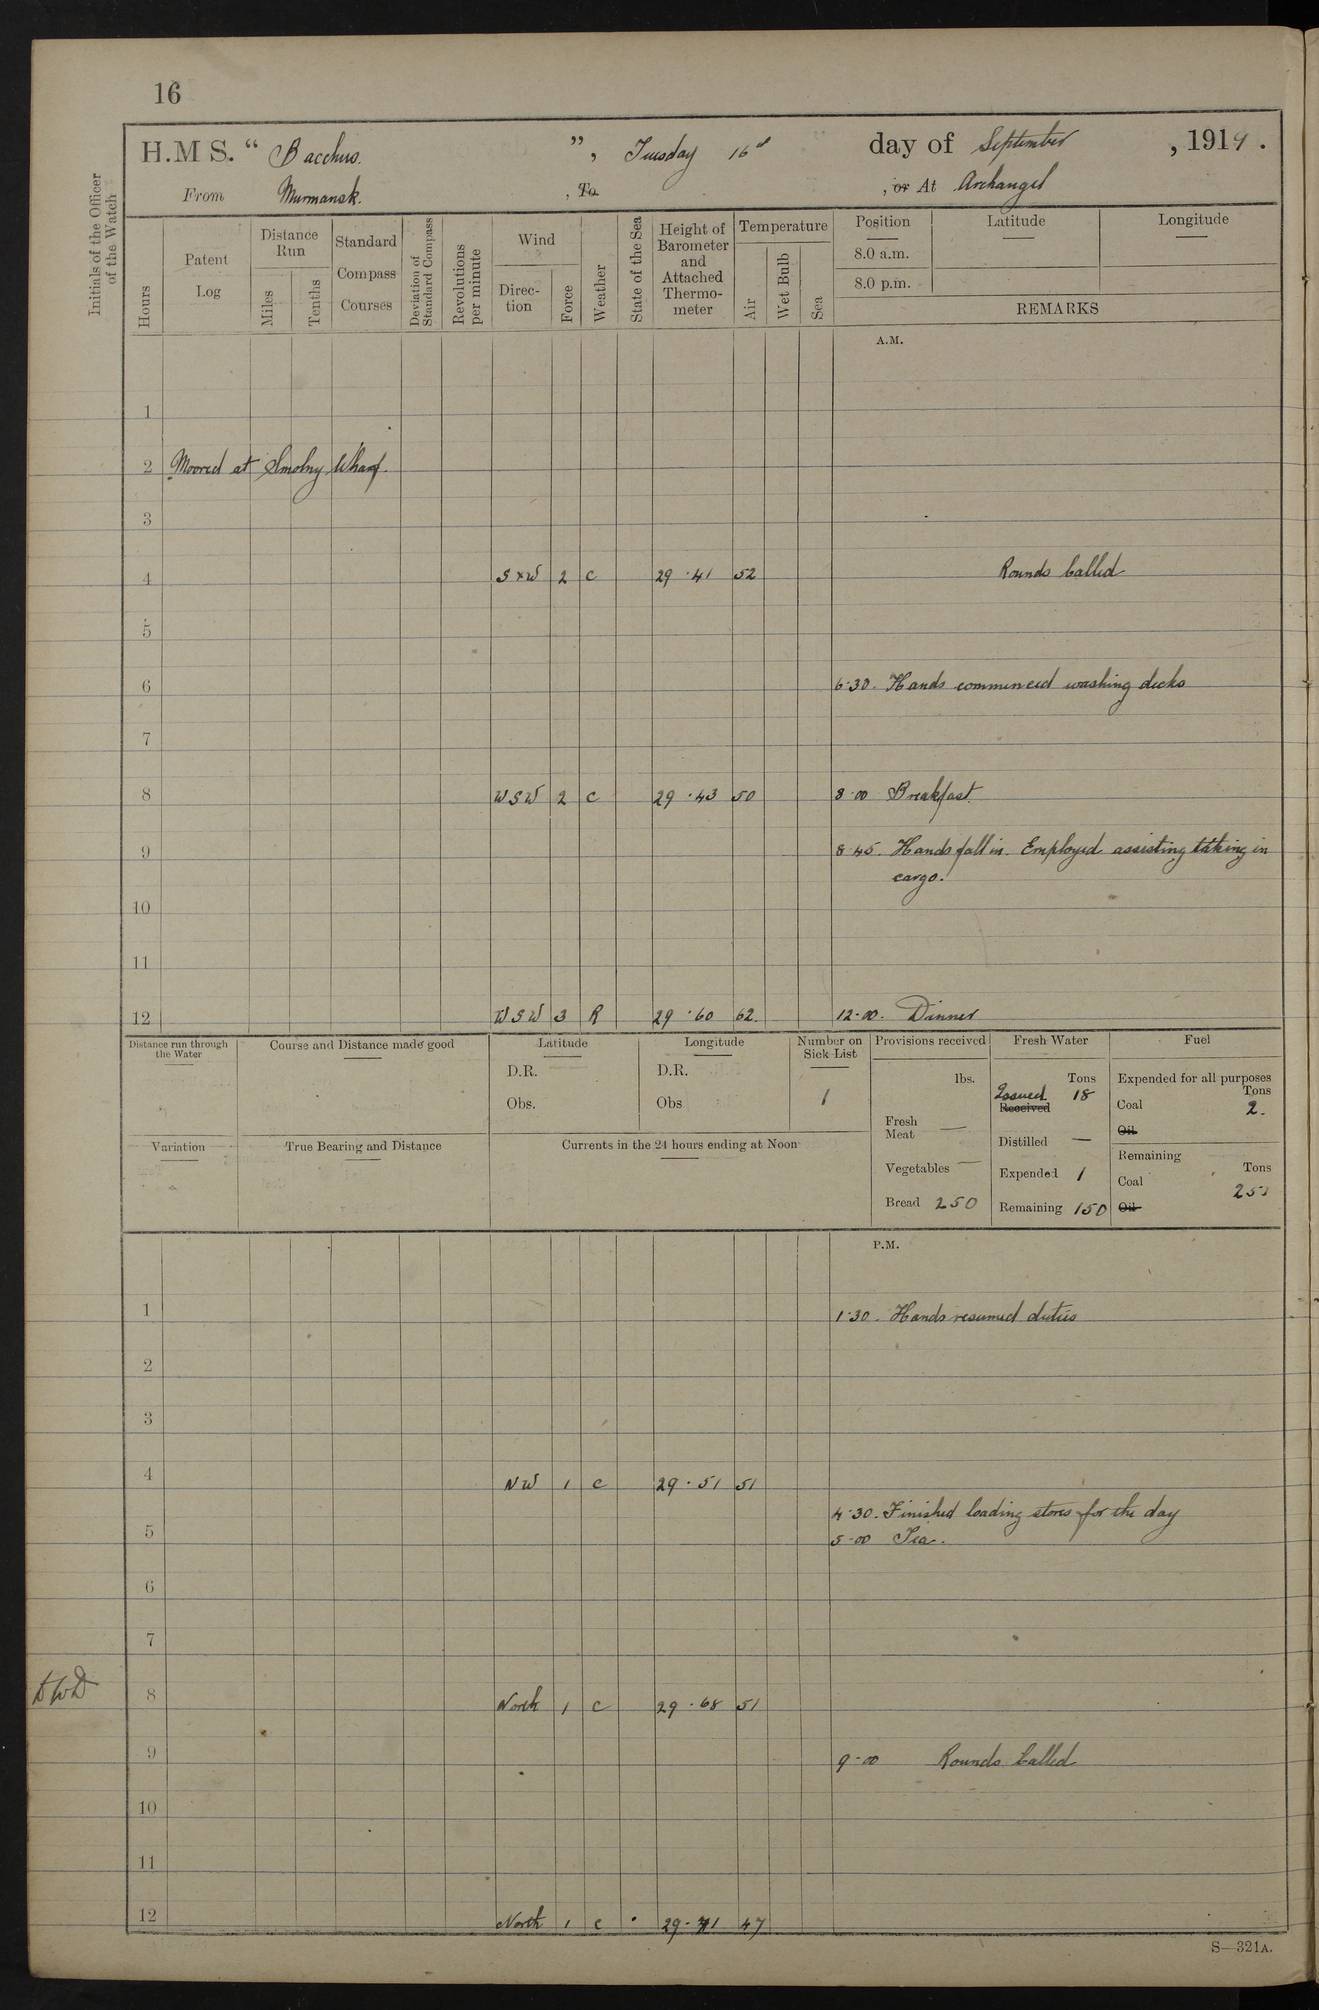 16
H.M S. “ Bacchus. ”, Tuesday 16th day of September , 1919.
From Murmansk. , To , or At Archangel
Initials of the Officer of the Watch
Hours
Patent Log
Distance Run
Miles
Tenths
Standard Compass Courses
Deviation of Standard Compass
Revolutions per minute
Wind
Direction
Force
Weather
State of the Sea
Height of Barometer and Attached Thermometer
Temperature
Air
Wet Bulb
Sea
Position Latitude Longitude
8.0 a.m.
8.0 p.m.
REMARKS
A.M.
1
2 Moored at Smolny Wharf.
3
4 S x W 2 C 29 .41 52 Rounds Called
5
6 6.30. Hands commenced washing decks
7
8 WSW 2 C 29 .43 50 8.00 Breakfast
9 8.45. Hands fall in. Employed assisting taking in
cargo.
10
11
12 WSW 3 R 29 .60 62. 12.00. Dinner
Distance run through the Water
Course and Distance made good
Latitude
D.R.
Obs.
Longitude
D.R.
Obs
Number on Sick List
1
Variation
True Bearing and Distance
Currents in the 24 hours ending at Noon
Provisions received
lbs.
Fresh Meat —
Vegetables —
Bread 250
Fresh Water
Tons
Issued 18
Received
Distilled —
Expended 1
Remaining 150
Fuel
Expended for all purposes
Tons
Coal 2.
Oil
Remaining
Tons
Coal
Oil
P.M.
1 1.30. Hands resumed duties
2
3
4 NW 1 C 29 .51 51
4.30. Finished loading stores for the day
5 5.00 Tea.
6
7
DWD
8 North 1 C 29 .68 51
9 9.00 Rounds Called
10
11
12 North 1 C 29. 71 47
S—321A.